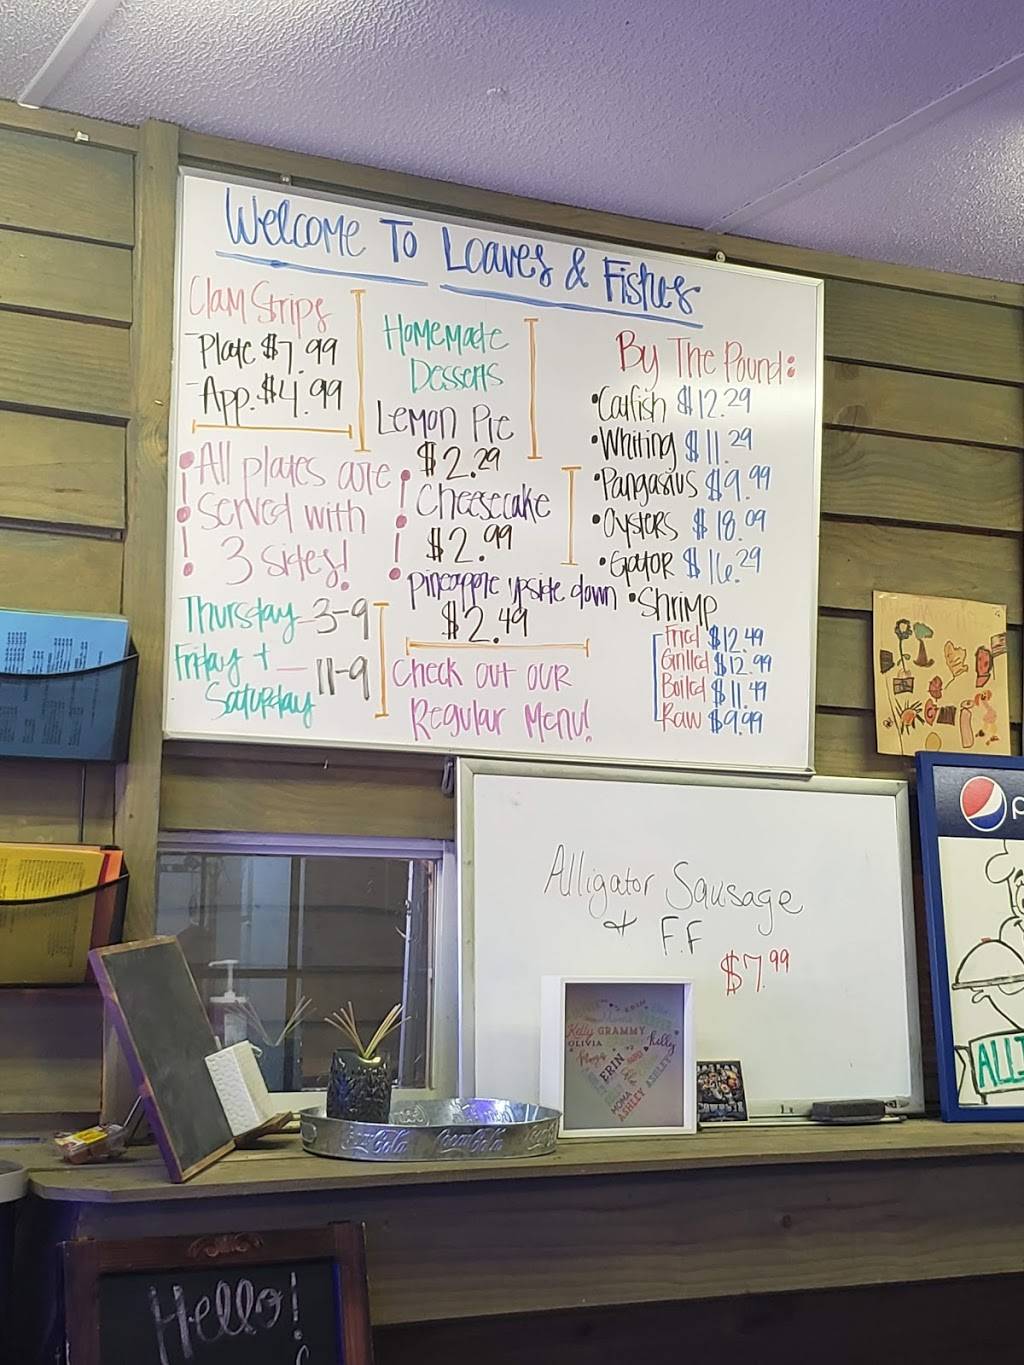 Welcome To Loaves & Fishes
Clam Strips
- Plate $7.99
- App. $4.99
! All plates are !
served with
3 sides!
Thursday - 3-9
Friday + — 11-9
Saturday
Homemade
Desserts
Lemon Pie
$2.29
Cheesecake
$2.99
Pineapple upside down
$2.49
Check out our
Regular Menu!
By The Pound:
• Catfish $12.29
• Whiting $11.29
• Pangasius $9.99
• Oysters $18.09
• Gator $16.29
• Shrimp
Fried $12.49
Grilled $12.99
Boiled $11.49
Raw $9.99
Alligator Sausage
+ F.F
$7.99
p
ALL
Kelly GRAMMY
OLIVIA
Kelly
ERIN
MEMA
ASHLEY
ASHLEY
Coca-Cola Coca-Cola
Hello!